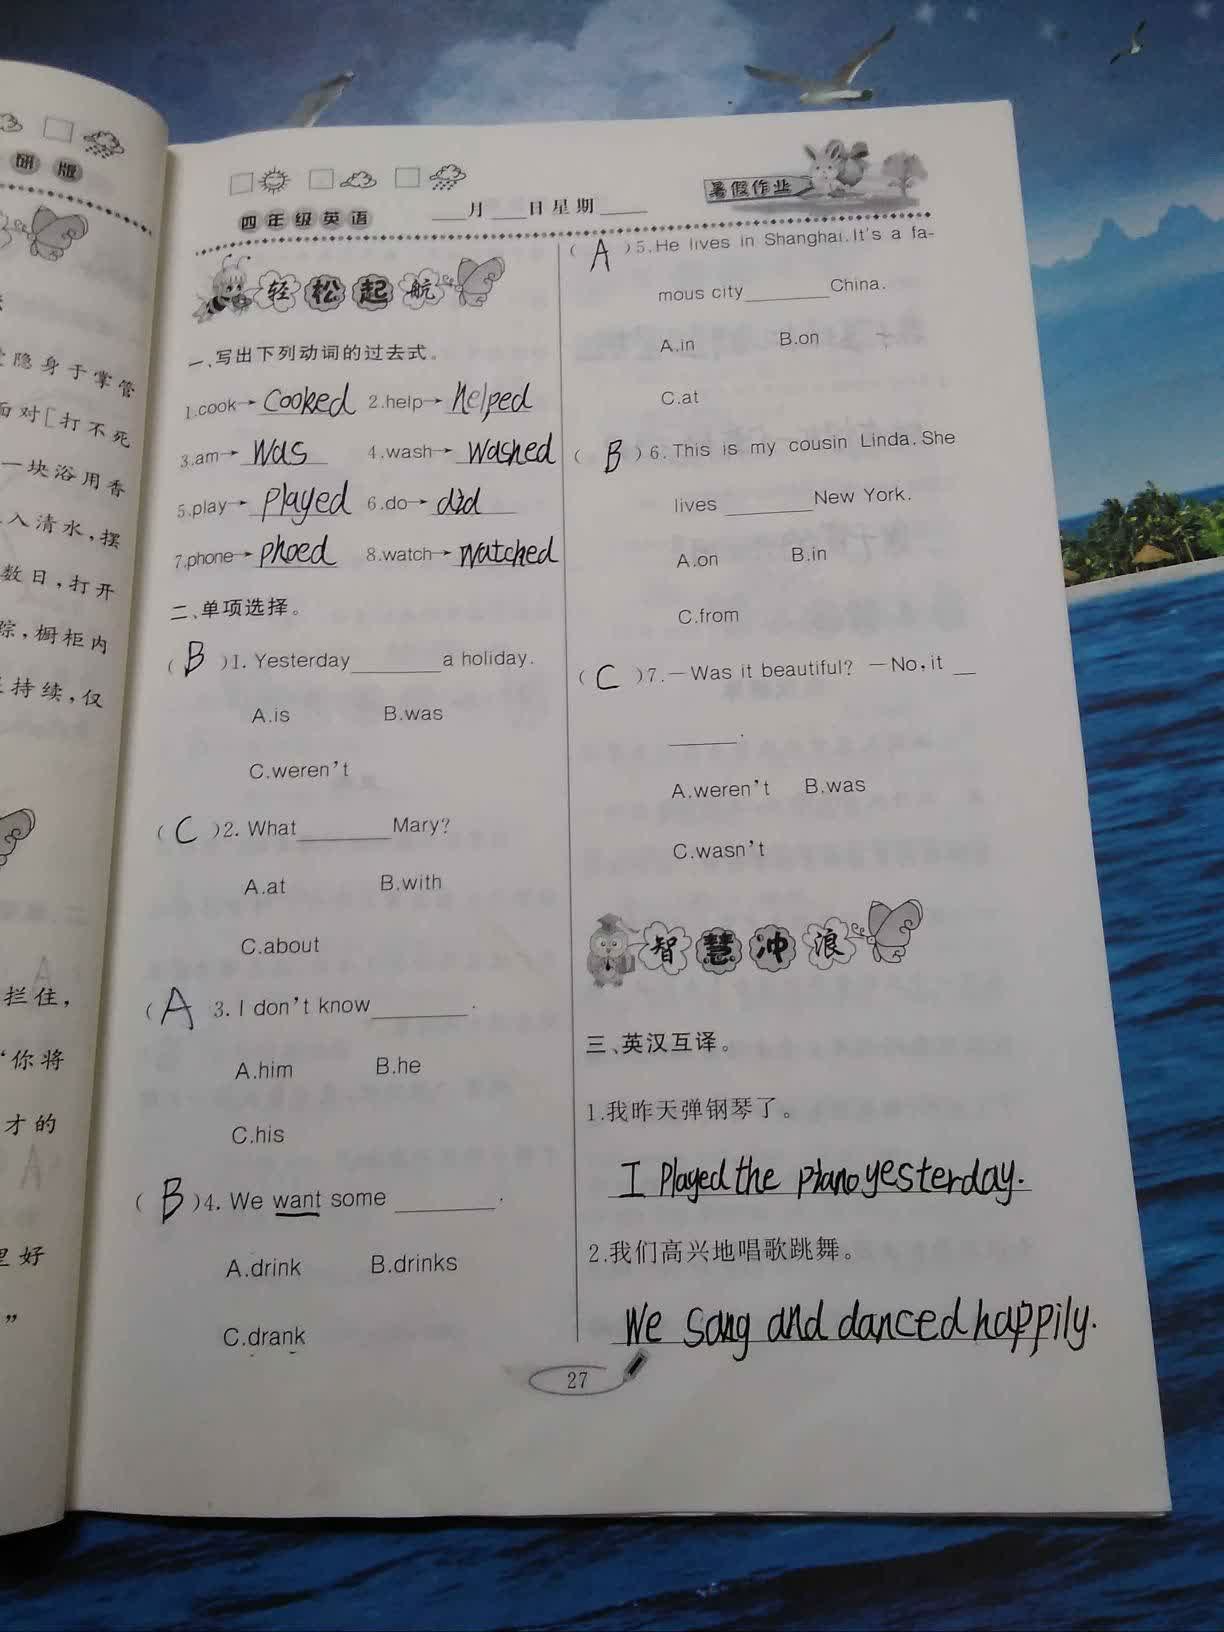 研版
隐身于掌管
面对[打不死
一块浴用香
入清水,摆
数日,打开
踪,橱柜内
持续,仅
拦住,
“你将
才的
里好
”
四年级英语
___月___日星期____
暑假作业
轻松起航
一、写出下列动词的过去式。
1.cook→ cooked 2.help→ helped
3.am→ was 4.wash→ washed
5.play→ played 6.do→ did
7.phone→ phoed 8.watch→ watched
二、单项选择。
( B )1. Yesterday________a holiday.
A.is B.was
C.weren't
( C )2. What________Mary?
A.at B.with
C.about
( A 3. I don't know________.
A.him B.he
C.his
( B )4. We want some ________.
A.drink B.drinks
C.drank
( A )5.He lives in Shanghai.It's a fa-
mous city________China.
A.in B.on
C.at
( B )6.This is my cousin Linda.She
lives ________New York.
A.on B.in
C.from
( C )7.—Was it beautiful? —No,it __
______.
A.weren't B.was
C.wasn't
智慧冲浪
三、英汉互译。
1.我昨天弹钢琴了。
I Played the piano yesterday.
2.我们高兴地唱歌跳舞。
We sang and danced happily.
27